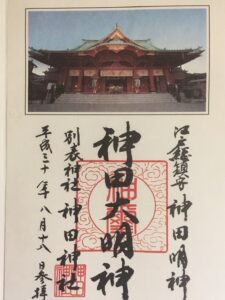 江戸総鎮守 神田明神
神田大明神
別表神社 神田神社
平成三十年八月十八日参拝